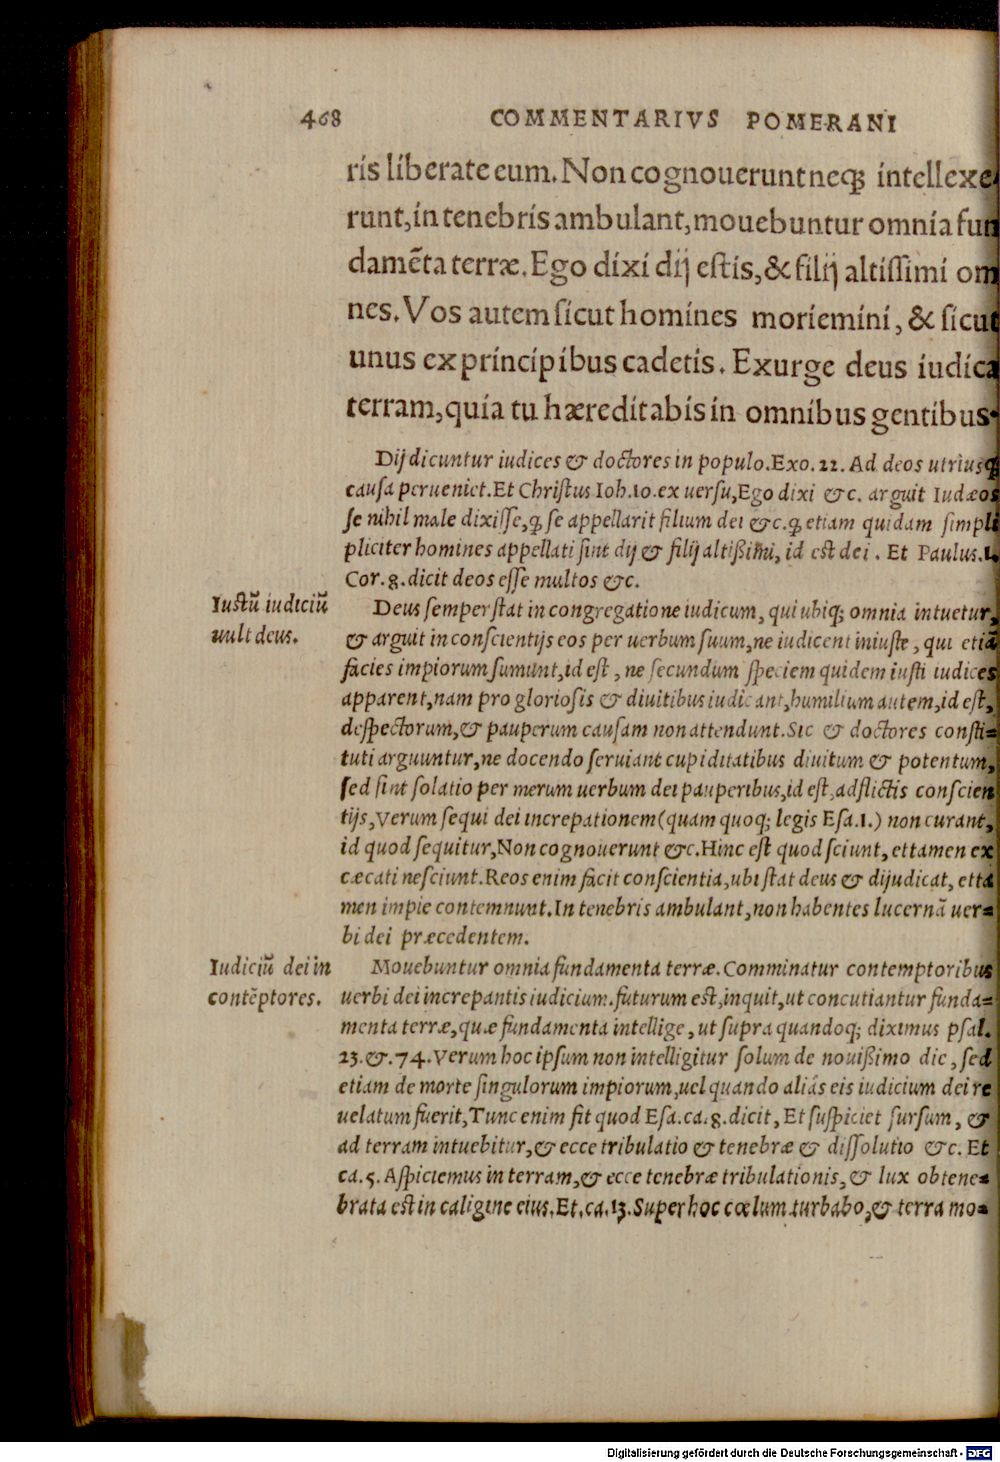 468 COMMENTARIVS POMERANI
ris liberate eum. Non cognouerunt neq; intellexe-
runt, in tenebris ambulant, mouebuntur omnia fun
damēta terræ. Ego dixi dij estis, & filij altissimi om
nes. Vos autem sicut homines moriemini, & sicut
unus ex principibus cadetis. Exurge deus iudica
terram, quia tu hæreditabis in omnibus gentibus.
Dij dicuntur iudices & doctores in populo. Exo. 22. Ad deos utriusq;
causa perueniet. Et Christus Ioh. 10. ex uersu, Ego dixi &c. arguit Iudæos
se nihil male dixisse, q̃ se appellarit filium dei &c. q̃ etiam quidam simpli
pliciter homines appellati sint dij & filij altißimi, id est dei. Et Paulus. 1.
Cor. 8. dicit deos esse multos &c.
Iustũ iudiciũ
uult deus.
Deus semper stat in congregatione iudicum, qui ubiq; omnia intuetur,
& arguit in conscientijs eos per uerbum suum, ne iudicent iniuste, qui etiã
facies impiorum sumunt, id est, ne secundum speciem quidem iusti iudices
apparent, nam pro gloriosis & diuitibus iudicant, humilium autem, id est,
despectorum, & pauperum causam non attendunt. Sic & doctores consti=
tuti arguuntur, ne docendo seruiant cupiditatibus diuitum & potentum,
sed sint solatio per merum uerbum dei pauperibus, id est, adflictis conscien
tijs, Verum sequi dei increpationem (quam quoq; legis Esa. 1.) non curant,
id quod sequitur, Non cognouerunt &c. Hinc est quod sciunt, et tamen ex
cæcati nesciunt. Reos enim facit conscientia, ubi stat deus & dijudicat, et ta
men impie contemnunt. In tenebris ambulant, non habentes lucernã uer=
bi dei præcedentem.
Iudiciũ dei in
contẽptores.
Mouebuntur omnia fundamenta terræ. Comminatur contemptoribus
uerbi dei increpantis iudicium. futurum est, inquit, ut concutiantur funda=
menta terræ, quæ fundamenta intellige, ut supra quandoq; diximus psal.
23. &. 74. Verum hoc ipsum non intelligitur solum de nouißimo die, sed
etiam de morte singulorum impiorum, uel quando aliás eis iudicium dei re
uelatum fuerit, Tunc enim fit quod Esa. ca. 8. dicit, Et suspiciet sursum, &
ad terram intuebitur, & ecce tribulatio & tenebræ & dissolutio &c. Et
ca. 5. Aspiciemus in terram, & ecce tenebræ tribulationis, & lux obtene=
brata est in caligine eius. Et. ca. 13. Super hoc cœlum turbabo, & terra mo=
Digitalisierung gefördert durch die Deutsche Forschungsgemeinschaft - DFG